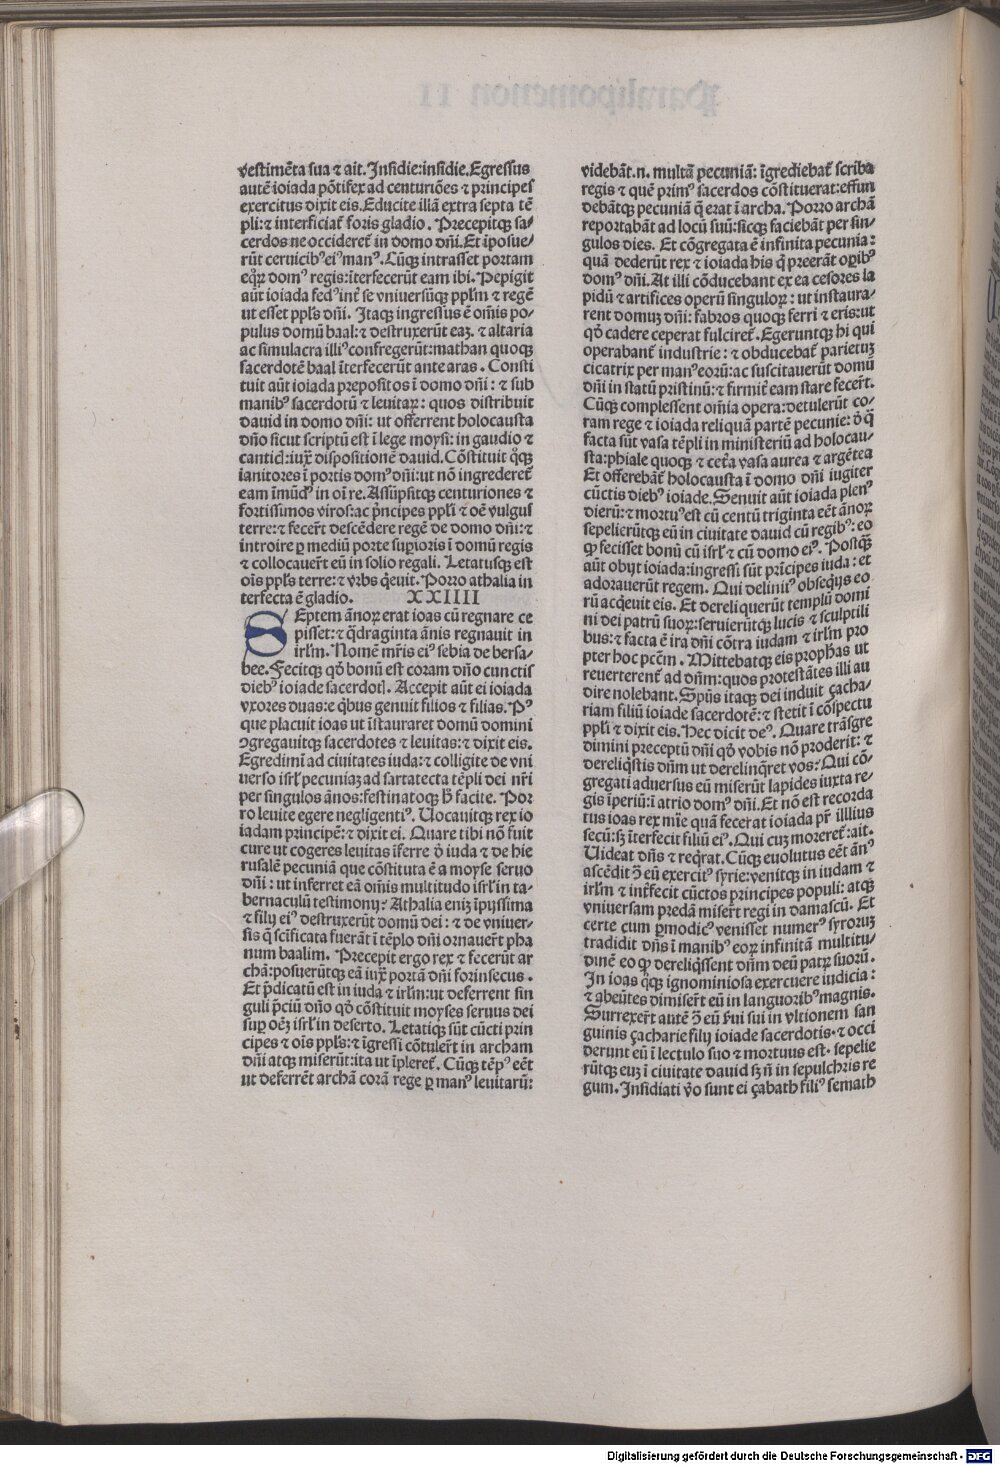 vestimēta sua ⁊ ait. Insidie:insidie.Egressus
autē ioiada pōtifex ad centuriōes ⁊ principes
exercitus dixit eis. Educite illā extra septa tē
pli:⁊ interficiat᷑ foris gladio. Precepitqꝫ sa⸗
cerdos ne occideret᷑ in domo dn̄i. Et īposue⸗
rūt ceruicibꝰ eiꝰ manꝰ. Cūqꝫ intrasset portam
eqꝝ domꝰ regis:īterfecerūt eam ibi. Pepigit
aūt ioiada fedꝰ int᷑ se vniuersūqꝫ pplm̄ ⁊ regē
ut esset ppl̄s dn̄i. Itaqꝫ ingressus ē om̄is po⸗
pulus domū baal:⁊ destruxerūt eaꝫ. ⁊ altaria
ac simulacra illiꝰ confregerūt:mathan quoqꝫ
sacerdotē baal īterfecerūt ante aras. Consti
tuit aūt ioiada prepositos ī domo dn̄i: ⁊ sub
manibꝰ sacerdotū ⁊ leuitaꝝ: quos distribuit
dauid in domo dn̄i: ut offerrent holocausta
dn̄o sicut scriptū est ī lege moysi: in gaudio ⁊
canticꝭ:iux̄ dispositionē dauid. Cōstituit qͦqꝫ
ianitores ī portis domꝰ dn̄i:ut nō ingrederet᷑
eam īmūdꝰ in oī re. Assūpsitqꝫ centuriones ⁊
fortissimos viros:ac pͥncipes ppl̄i ⁊ oē vulgus
terre:⁊ fecer̄t descēdere regē de domo dn̄i:⁊
introire ꝑ mediū porte suꝑioris ī domū regis
⁊ collocauer̄t eū in solio regali. Letatusqꝫ est
oīs ppl̄s terre:⁊ vrbs qͥeuit. Porro athalia in
terfecta ē gladio. XXIIII
SEptem ānoꝝ erat ioas cū regnare ce
pisset:⁊ qͣdraginta ānis regnauit in
irl̄m. Nomē mr̄is eiꝰ sebia de bersa⸗
bee. Fecitqꝫ qͦ bonū est coram dn̄o cunctis
diebꝰ ioiade sacerdotꝭ. Accepit aūt ei ioiada
vxores duas:e qͥbus genuit filios ⁊ filias. Pꝰ
que placuit ioas ut īstauraret domū domini
ꝯgregauitqꝫ sacerdotes ⁊ leuitas:⁊ dixit eis.
Egredimī ad ciuitates iuda:⁊ colligite de vni
uerso isrl̄ pecuniaꝫ ad sartatecta tēpli dei nr̄i
per singulos ānos:festinatoqꝫ h̄ facite. Por
ro leuite egere negligentiꝰ. Uocauitqꝫ rex io
iadam principē:⁊ dixit ei. Quare tibi nō fuit
cure ut cogeres leuitas īferre d̄ iuda ⁊ de hie
rusalē pecuniā que cōstituta ē a moyse seruo
dn̄i: ut inferret eā om̄is multitudo isrl̄ in ta⸗
bernaculū testimonij? Athalia eniꝫ īpijssima
⁊ filij eiꝰ destruxerūt domū dei: ⁊ de vniuer⸗
sis q̄ scīficata fuerāt ī tēplo dn̄i ornauer̄t pha
num baalim. Precepit ergo rex ⁊ fecerūt ar
chā:posuerūtqꝫ eā iux̄ portā dn̄i forinsecus.
Et p̄dicatū est in iuda ⁊ irl̄m:ut deferrent sin
guli p̄ciū dn̄o qͦ cōstituit moyses seruus dei
suꝑ oēꝫ isrl̄ in deserto. Letatiqꝫ sūt cūcti prin
cipes ⁊ oīs ppl̄s:⁊ īgressi cōtuler̄t in archam
dn̄i atqꝫ miserūt:ita ut īpleret᷑. Cūqꝫ tēpꝰ eēt
ut deferrēt archā corā rege ꝑ manꝰ leuitarū:
videbāt.n. multā pecuniā: īgrediebat᷑ scriba
regis ⁊ quē primꝰ sacerdos cōstituerat:effun
debātqꝫ pecuniā q̄ erat ī archa. Porro archā
reportabāt ad locū suū:sicqꝫ faciebāt per sin⸗
gulos dies. Et cōgregata ē infinita pecunia:
quā dederūt rex ⁊ ioiada his q̄ preerāt oꝑibꝰ
domꝰ dn̄i. At illi cōducebant ex ea cesores la
pidū ⁊ artifices operū singuloꝝ: ut instaura⸗
rent domuꝫ dn̄i: fabros quoqꝫ ferri ⁊ eris:ut
qͦ cadere ceperat fulciret᷑. Egeruntqꝫ hi qui
operabant᷑ industrie: ⁊ obducebat᷑ parietuꝫ
cicatrix per manꝰ eorū:ac suscitauerūt domū
dn̄i in statū pristinū:⁊ firmit᷑ eam stare fecer̄t.
Cūqꝫ complessent om̄ia opera:detulerūt co⸗
ram rege ⁊ ioiada reliquā partē pecunie: d̄ q̄
facta sūt vasa tēpli in ministeriū ad holocau⸗
sta:phiale quoqꝫ ⁊ cet᷑a vasa aurea ⁊ argētea
Et offerebāt᷑ holocausta ī domo dn̄i iugiter
cūctis diebꝰ ioiade. Senuit aūt ioiada plenꝰ
dierū:⁊ mortuꝰ est cū centū triginta eēt ānoꝝ
sepelierūtqꝫ eū in ciuitate dauid cū regibꝰ: eo
qͥ fecisset bonū cū isrl̄ ⁊ cū domo eiꝰ. Postqͣꝫ
aūt obijt ioiada:ingressi sūt prīcipes iuda: et
adorauerūt regem. Qui delinitꝰ obsequijs eo
rū acqͥeuit eis. Et dereliquerūt templū domi
ni dei patrū suoꝝ:seruierūtqꝫ lucis ⁊ sculptili
bus:⁊ facta ē ira dn̄i cōtra iudam ⁊ irl̄m pro
pter hoc pctm̄. Mittebatqꝫ eis proph̄as ut
reuerterent᷑ ad dn̄m:quos protestātes illi au
dire nolebant. Spūs itaqꝫ dei induit çacha⸗
riam filiū ioiade sacerdotē:⁊ stetit ī cōspectu
ppl̄i ⁊ dixit eis. Hec dicit deꝰ. Quare trāsgre
dimini preceptū dn̄i qͦ vobis nō proderit: ⁊
dereliqͥstis dn̄m ut derelinqͤret vos? Qui cō⸗
gregati aduersus eū miserūt lapides iuxta re⸗
gis īperiū:ī atrio domꝰ dn̄i. Et nō est recorda
tus ioas rex mīe quā fecerat ioiada pr̄ illius
secū:sꝫ īterfecit filiū eiꝰ. Qui cuꝫ moreret᷑:ait.
Uideat dn̄s ⁊ reqͥrat. Cūqꝫ euolutus eēt ānꝰ
ascēdit ꝯ̄ eū exercitꝰ syrie:venitqꝫ in iudam ⁊
irl̄m ⁊ int᷑fecit cūctos principes populi: atqꝫ
vniuersam predā miser̄t regi in damascū. Et
certe cum ꝑmodicꝰ venisset numerꝰ syroruꝫ
tradidit dn̄s ī manibꝰ eoꝝ infinitā multitu⸗
dinē eo qͥ dereliqͥssent dn̄m deū patꝝ suorū.
In ioas qͦqꝫ ignominiosa exercuere iudicia:
⁊ abeūtes dimiser̄t eū in languoribꝰ magnis.
Surrexer̄t autē ꝯ̄ eū ẜui sui in vltionem san
guinis çacharie filij ioiade sacerdotis. ⁊ occi
derunt eū ī lectulo suo ⁊ mortuus est. sepelie
rūtqꝫ euꝫ ī ciuitate dauid sꝫ n̄ in sepulchris re
gum. Insidiati v̄o sunt ei çabath filiꝰ semath
Digitalisierung gefördert durch die Deutsche Forschungsgemeinschaft - DFG